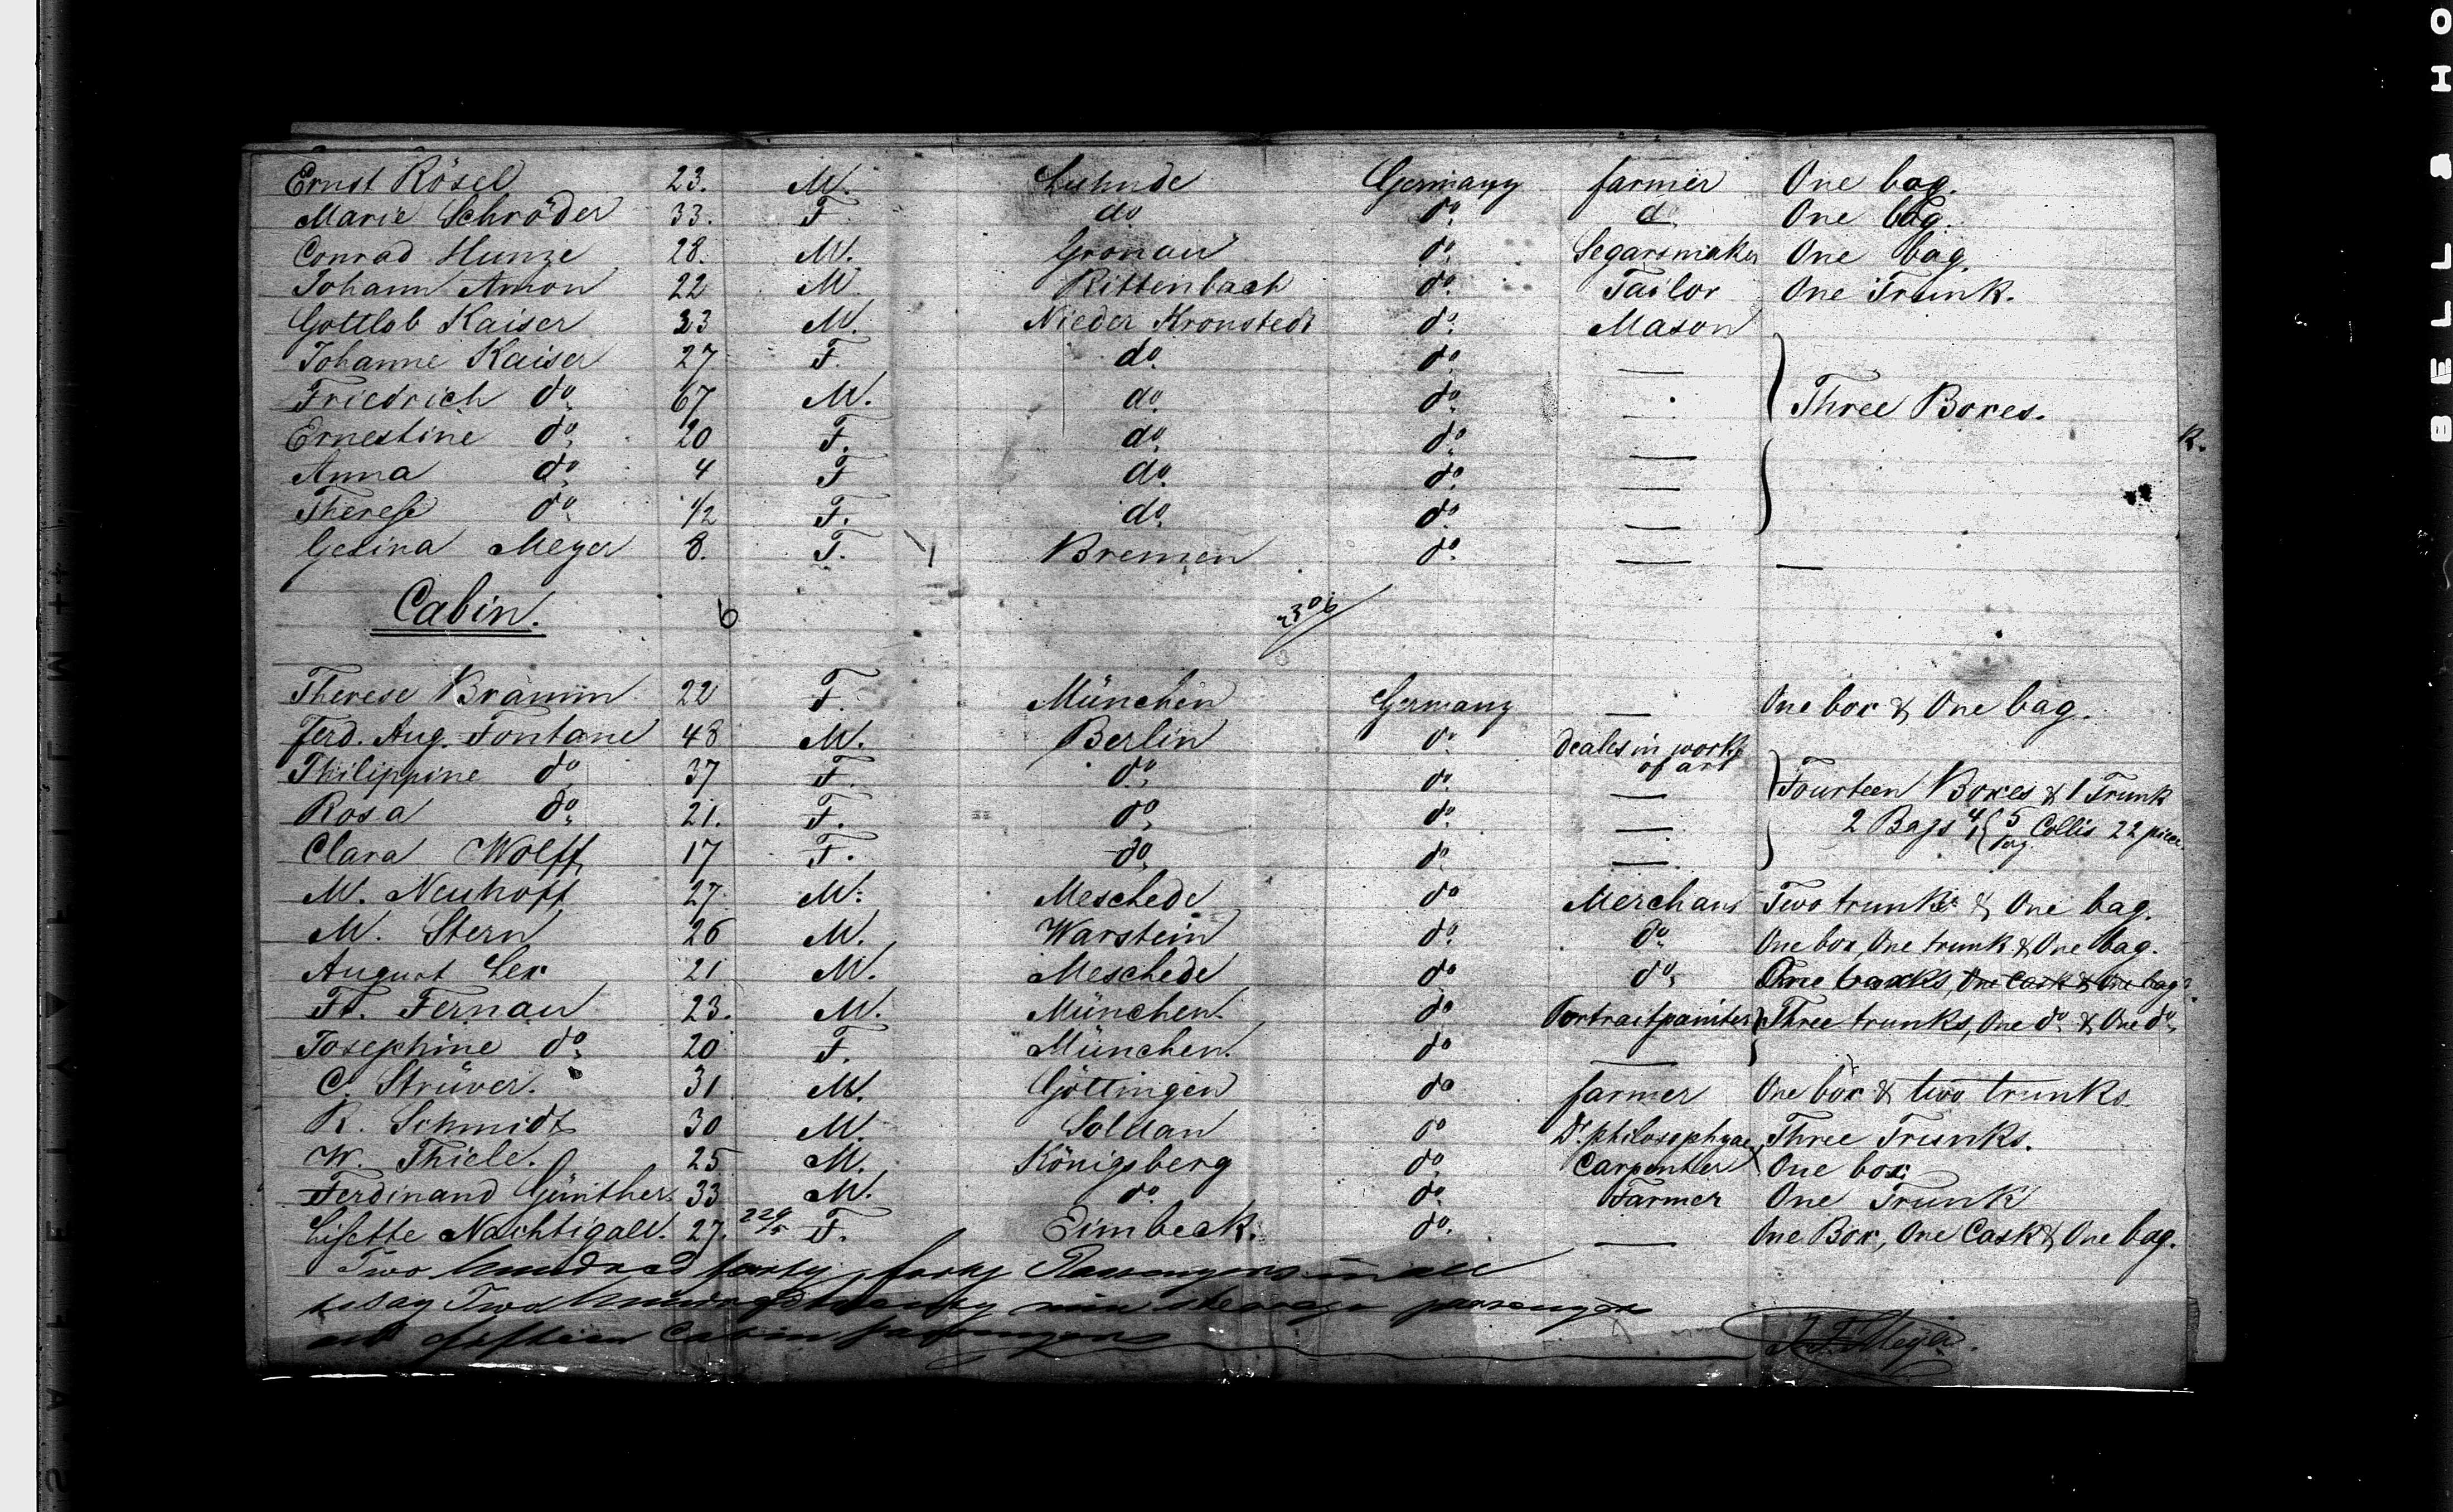 Ernst Rösel 23. M. Germany farmer One bag.
Marie Schröder 33. F. do do. d One bag.
Conrad Hunze 28. M. Gronau do. Segarsmaker One bag
Johann Amon 22 M Rittenbach do. Tailor One Trunk.
Gottlob Kaiser 33 M. Nieder Kronstedt do. Mason
Johanne Kaiser 27 F. do. do. —
Friedrich do. 67 M. do. do. — Three Boxes.
Ernestine do. 20 F. do. do. —
Anna do. 4 F do. do. —
Therese do. 1/2 F. do. do. —
Gesina Meyer 8. F. Bremen do. — —
R.
Cabin. 6
Therese Brämm 22 F. München Germany — One box & One bag.
Ferd. Aug. Fontane 48 M. Berlin do Deales in works
of art
Philippine do 37 F. do. do. — Fourteen Boxes & 1 Trunk
Rosa do. 21. F. do. do. — 2 Bags 4 5 Collis 22 piece
Clara Wolff 17 F. do. do. —.
M. Neuhoff 27. M. Meschede do Merchant Two trunks & One bag.
M. Stern 26 M. Warstein do. do. One box, One trunk & One bag.
August Lex 21 M. Meschede do. do. trunks, One Cask & One bag.
Fr. Fernau 23. M. München. do Portraitpainter Three trunks, One do. & One do.
Josephine do. 20 F. München. do —
C. Strüver. 31 M. Göttingen do farmer One box & two trunks
R. Schmidt 30 M. Soldan do Dr. philosophyae Three Trunks.
W. Thiele. 25 M. Königsberg do. Carpenter One box
Ferdinand Günther. 33 M. do. do. Farmer One Trunk
Lisette Nachtigall. 27. 229 F. Eimbeck. do. — One Box, One Cask & One bag.
Two hundred forty, forty Passengers in all
to say Two hundred twenty nine steerage passenger
and fifteen Cabin passengers
BELL & HO